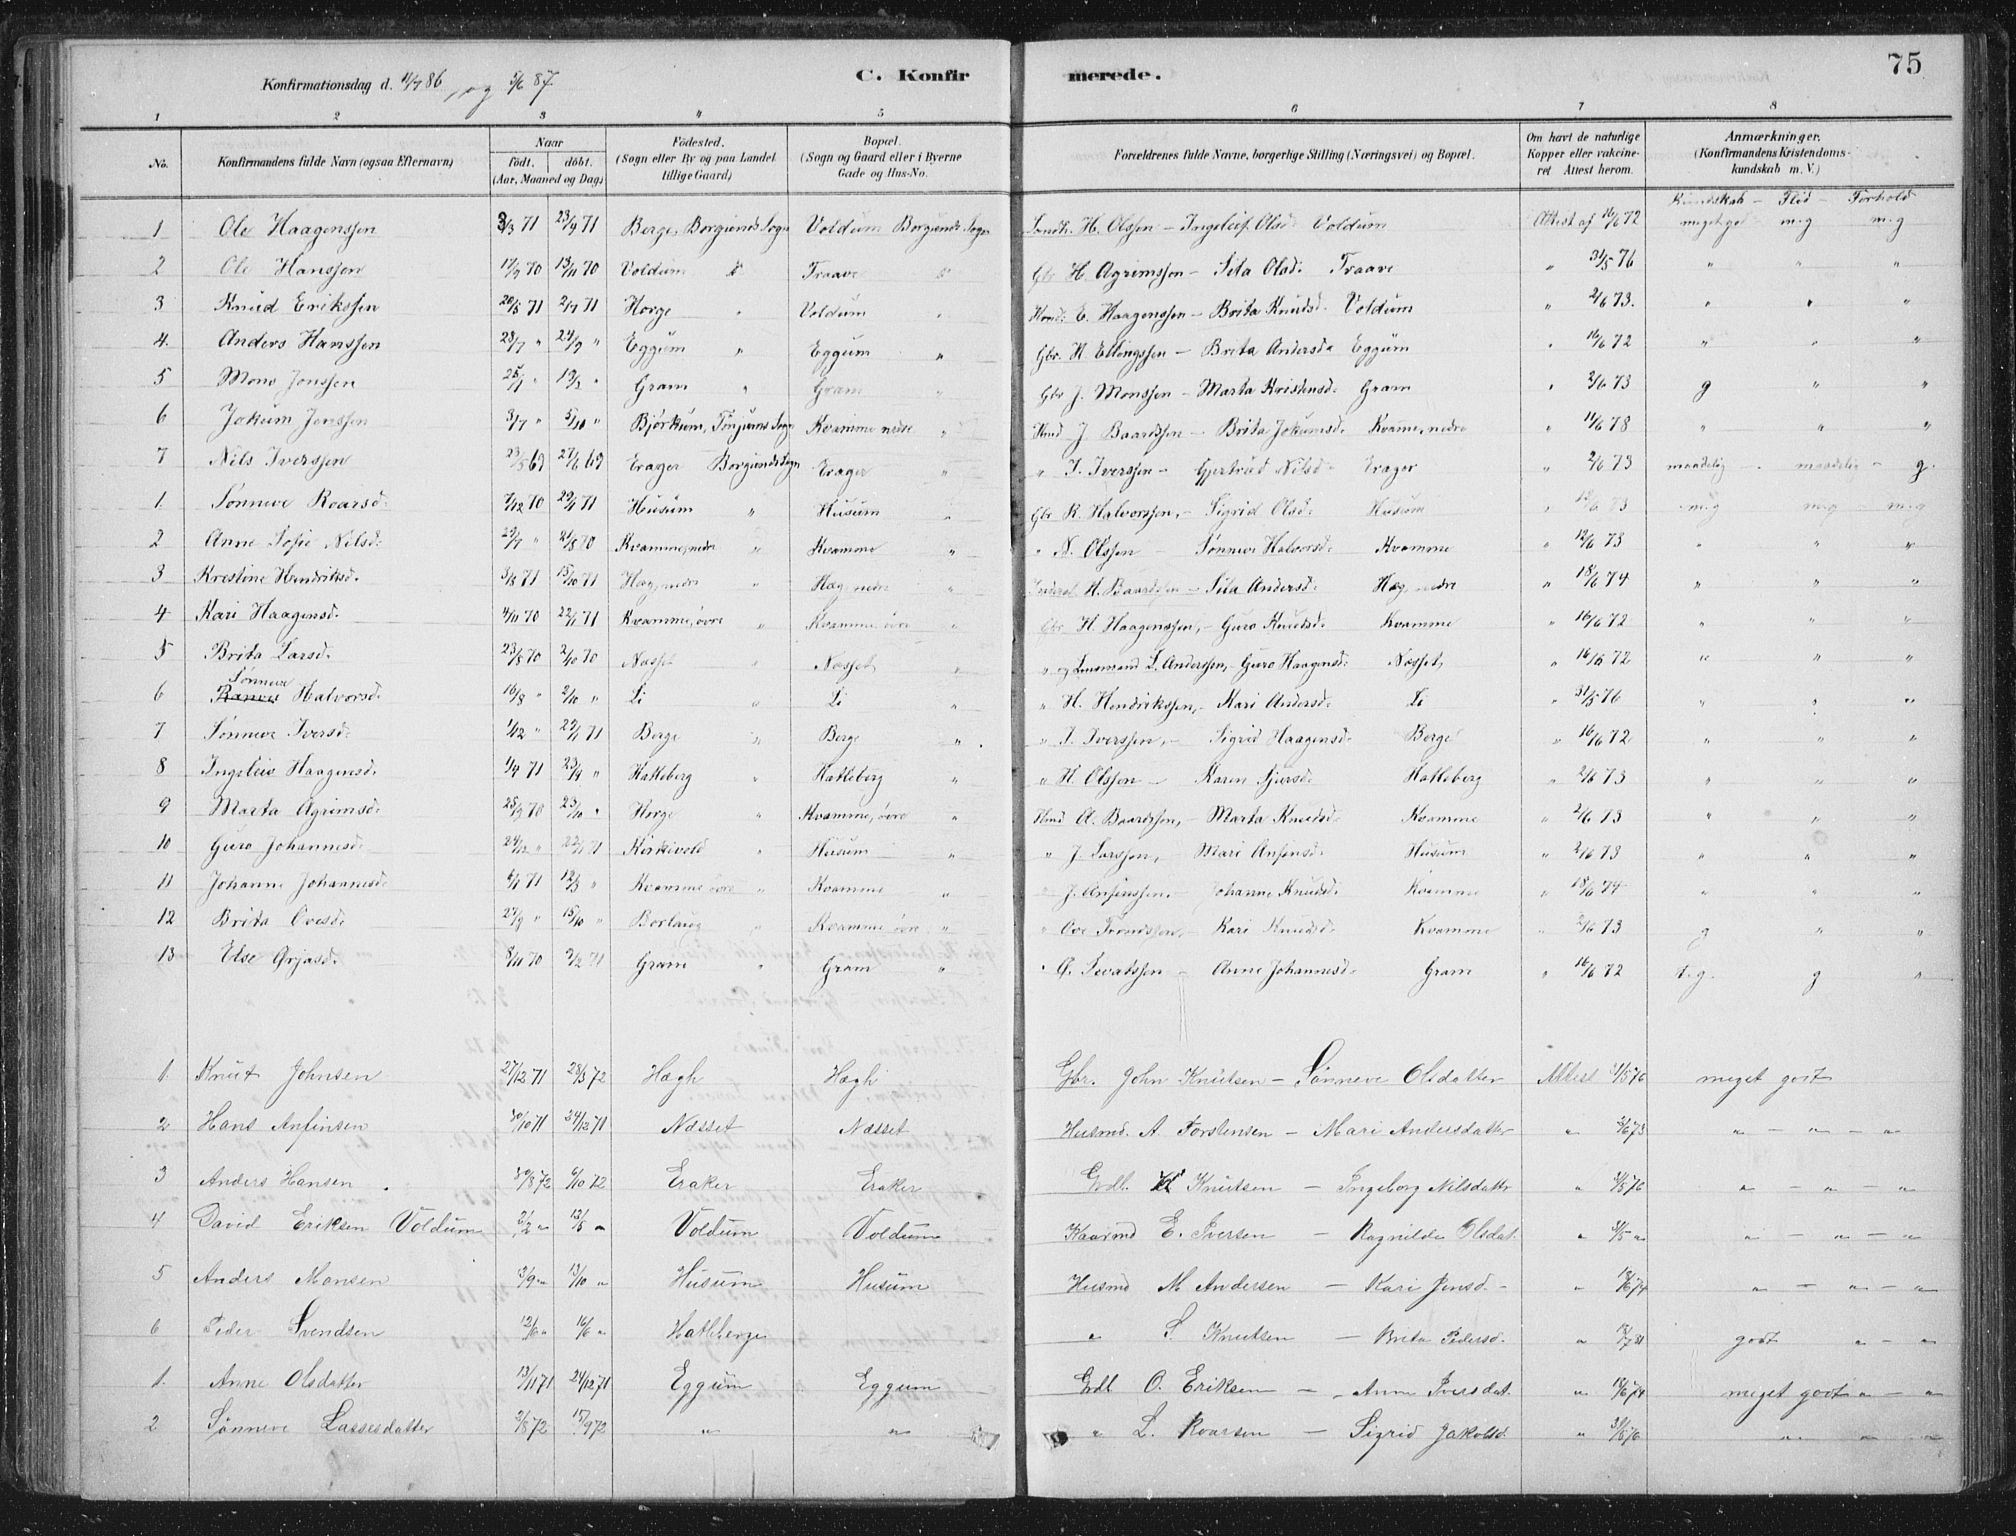 75
Konfirmationsdag d. 11/7 86, og 5/6 87. C. Konfirmerede.
1 2 3 4 5 6 7 8
No. Konfirmandens fulde Navn (ogsaa Efternavn) Naar født. døbt. (Aar, Maaned og Dag) Fødested. (Sogn eller By og paa Landet tillige Gaard) Bopæl. (Sogn og Gaard eller i Byerne Gade og Hus-No. Forældrenes fulde Navne, borgerlige Stilling (Næringsvei) og Bopæl. Om havt de naturlige Kopper eller vakcineret Attest herom. Anmærkninger. (Konfirmandens Kristendomskundskab m. V.)
Kundskab – Flid – Forhold
1 Ole Haagenssen 3/3 71 23/9 71 Berge, Borgunds Sogn Voldum Borgunds Sogn H. Olssen – Ingeleif Olsd. Voldum Attest af 16/6 72 meget gd m.g m.g
2 Ole Hanssen 17/9 70 13/11 70 Voldum Traave Gbr H. Agrimssen – Sita Olsd. Traave " 31/5 76 " " "
3 Knud Erikssen 20/5 71 2/7 71 Horge " Voldum " Hmd. E. Haagenssen – Brita Knudsd. Voldum 2/6 73. " " "
4. Anders Hanssen 23/7 " 24/9 " Eggum " Eggum " Gbr. H. Ellingssen – Brita Andersd. Eggum " 16/6 72 " " "
5 Mons Jonssen 25/1 " 19/3 " Gram " Gram " Gbr J. Monssen – Marta Kristensd. Gram " 2/6 73 g " "
6 Jokum Jenssen 3/7 " 5/10 " Bjørkum, Tønjums Sogn Kvamme nedre " Hmd J. Baardssen – Brita Jokumsd. Kvame, nedre " 11/6 78 " " "
7 Nils Iverssen 23/5 69 27/6 69 Erager Borgunds Sogn Erager " " I. Iverssen – Gjertrud Nilsd. Erager " 2/6 73 maadelig – maadelig – g.
1. Sønneve Roarsd. 7/12 70 29/1 71 Husum " Husum " Gbr R. Halvorssen, – Sigrid Olsd. Husum " 12/6 73 m.g m.g – m.g
2 Anne Sofie Nilsd. 29/7 " 21/8 70 Kvamme, nedre " Kvamme " " N. Olssen – Sønneve Halvorsd. Kvamme " 12/6 73 " " "
3 Kristine Hendriksd. 3/8 71 15/10 71 Hæg, nedre " Hæg, nedre " H. Baardssen – Sita Andersd. Hæg, nedre " 18/6 74 " " "
4 Kari Haagensd. 4/11 70 22/1 71 Kvamme, øvre " Kvamme, øvre " Gbr H. Haagenssen, – Guro Knutsd. Kvamme " 16/6 72 " " "
5 Brita Larsd. 23/8 70 2/10 70 Næsset " Næsset " " og Lensmand L. Anderssen, – Guro Haagensd. Næsset, " 16/6 72 " " "
Sønneve
6 Halvorsd. 16/8 " 2/10 " Li " Li " " H. Hendrikssen, – Kari Andersd. Li " 31/5 76 " " "
7 Sønneve Iversd. 1/12 " 29/1 71 Berge " Berge " " I. Iverssen, – Sigrid Haagensd. Berge " 16/6 72 " " "
8 Ingeleiv Haagensd. 1/9 71 23/9 " Hatleberg " Hatleberg " " H. Olssen – Karen Sjursd. Hatleberg " 2/6 73 " " "
9 Marta Agrimsd. 25/9 70 23/10 " Horge " Kvamme, øvre " Hmd A. Baardssen, – Marta Knudsd. Kvamme " 2/6 73 " " "
10 Guro Johannesd. 24/12 " 22/1 71 Kirkevold " Husum " " J. Larssen, Mari Anfensd. Husum " 2/6 73 " " "
11 Johanne Johannesd. 6/1 71 12/3 " Kvamme øvre " Kvamme " " J. Anfinssen, – Johanne Knudsd. Kvamme " 18/6 74 " " "
12 Brita Ovesd. 27/9 " 15/10 " Borlaug " Kvamme, øvre " " Ove Trondssen, – Kari Knudsd. Kvamme " 2/6 73 g " "
13 Else Ørjasd. 8/11 70 71 Gram " Gram " " Ø. Sevatssen – Anne Johannesd. Gram " 16/6 72 t.g. g "
1. Knut Johnsen 27/12 71 28/3 72 Hægh Hægh Gbr. John Knutsen – Sønneve Olsdatter Attest 31/5 76 meget godt
2 Hans Anfinsen 30/10 71 24/12 71 Næsset Næsset Husmd. A. Torstensen – Mari Andersdatter " 2/6 73 " – " – "
3 Anders Hansen 30/8 72 6/10 72 Eraker Eraker Grdb. H Knutsen – Ingeborg Nilsdattr " 31/5 76 " – " – "
4 David Eriksen Voldum 2/2 " 12/5 " Voldum Voldum Kaarmd E. Iversen – Ragnilde Olsdat. " 31/5 " " – " – "
5 Anders Monsen 13/9 " 13/10 " Husum Husum Husmd M. Andersen – Kari Jensd. – " 18/6 74 " – " – "
6 Peder Svendsen 12/6 " 16/6 " Hatleberge " S. Knutsen – Brita Pedersd. " godt " – "
1. Anne Olsdatter 13/11 71 24/12 71 Eggum Eggum Grdb O. Eriksen – Anne Iversdat. " 18/6 74 meget godt " – "
2 Sønneve Lassesdatter 3/8 72 15/9 72 " " " L. Roarsen – Sigrid Jakobsd. " 31/5 76 " " – "